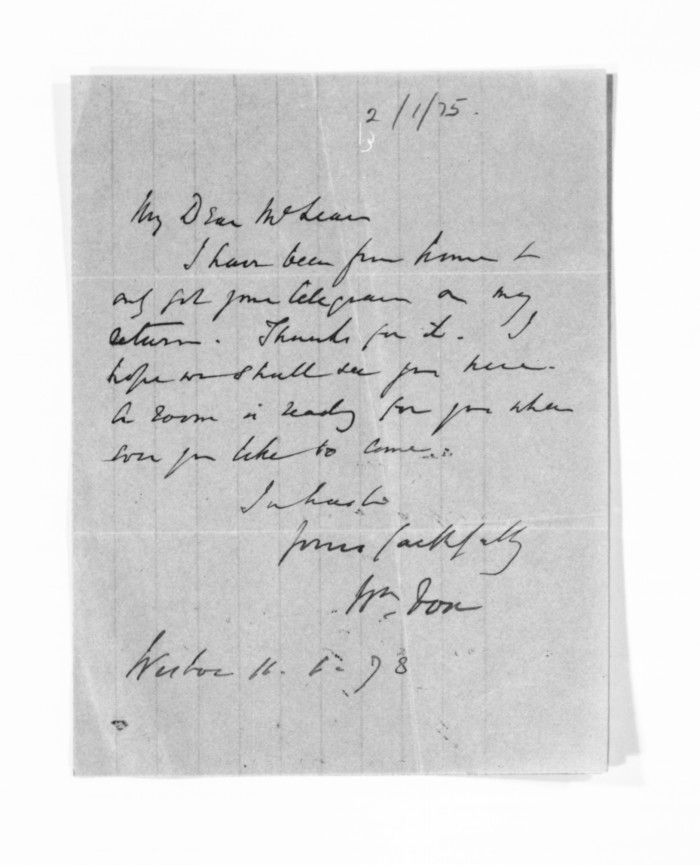 2/1/75.
3
My Dear McLean
I have been from home &
only got your telegram on my
return. Thanks for it. I
hope we shall see you here.
A room is ready for you when
ever you like to come.
In haste
Yours faithfully
Wm Fox
Westoe 11. 6. 73